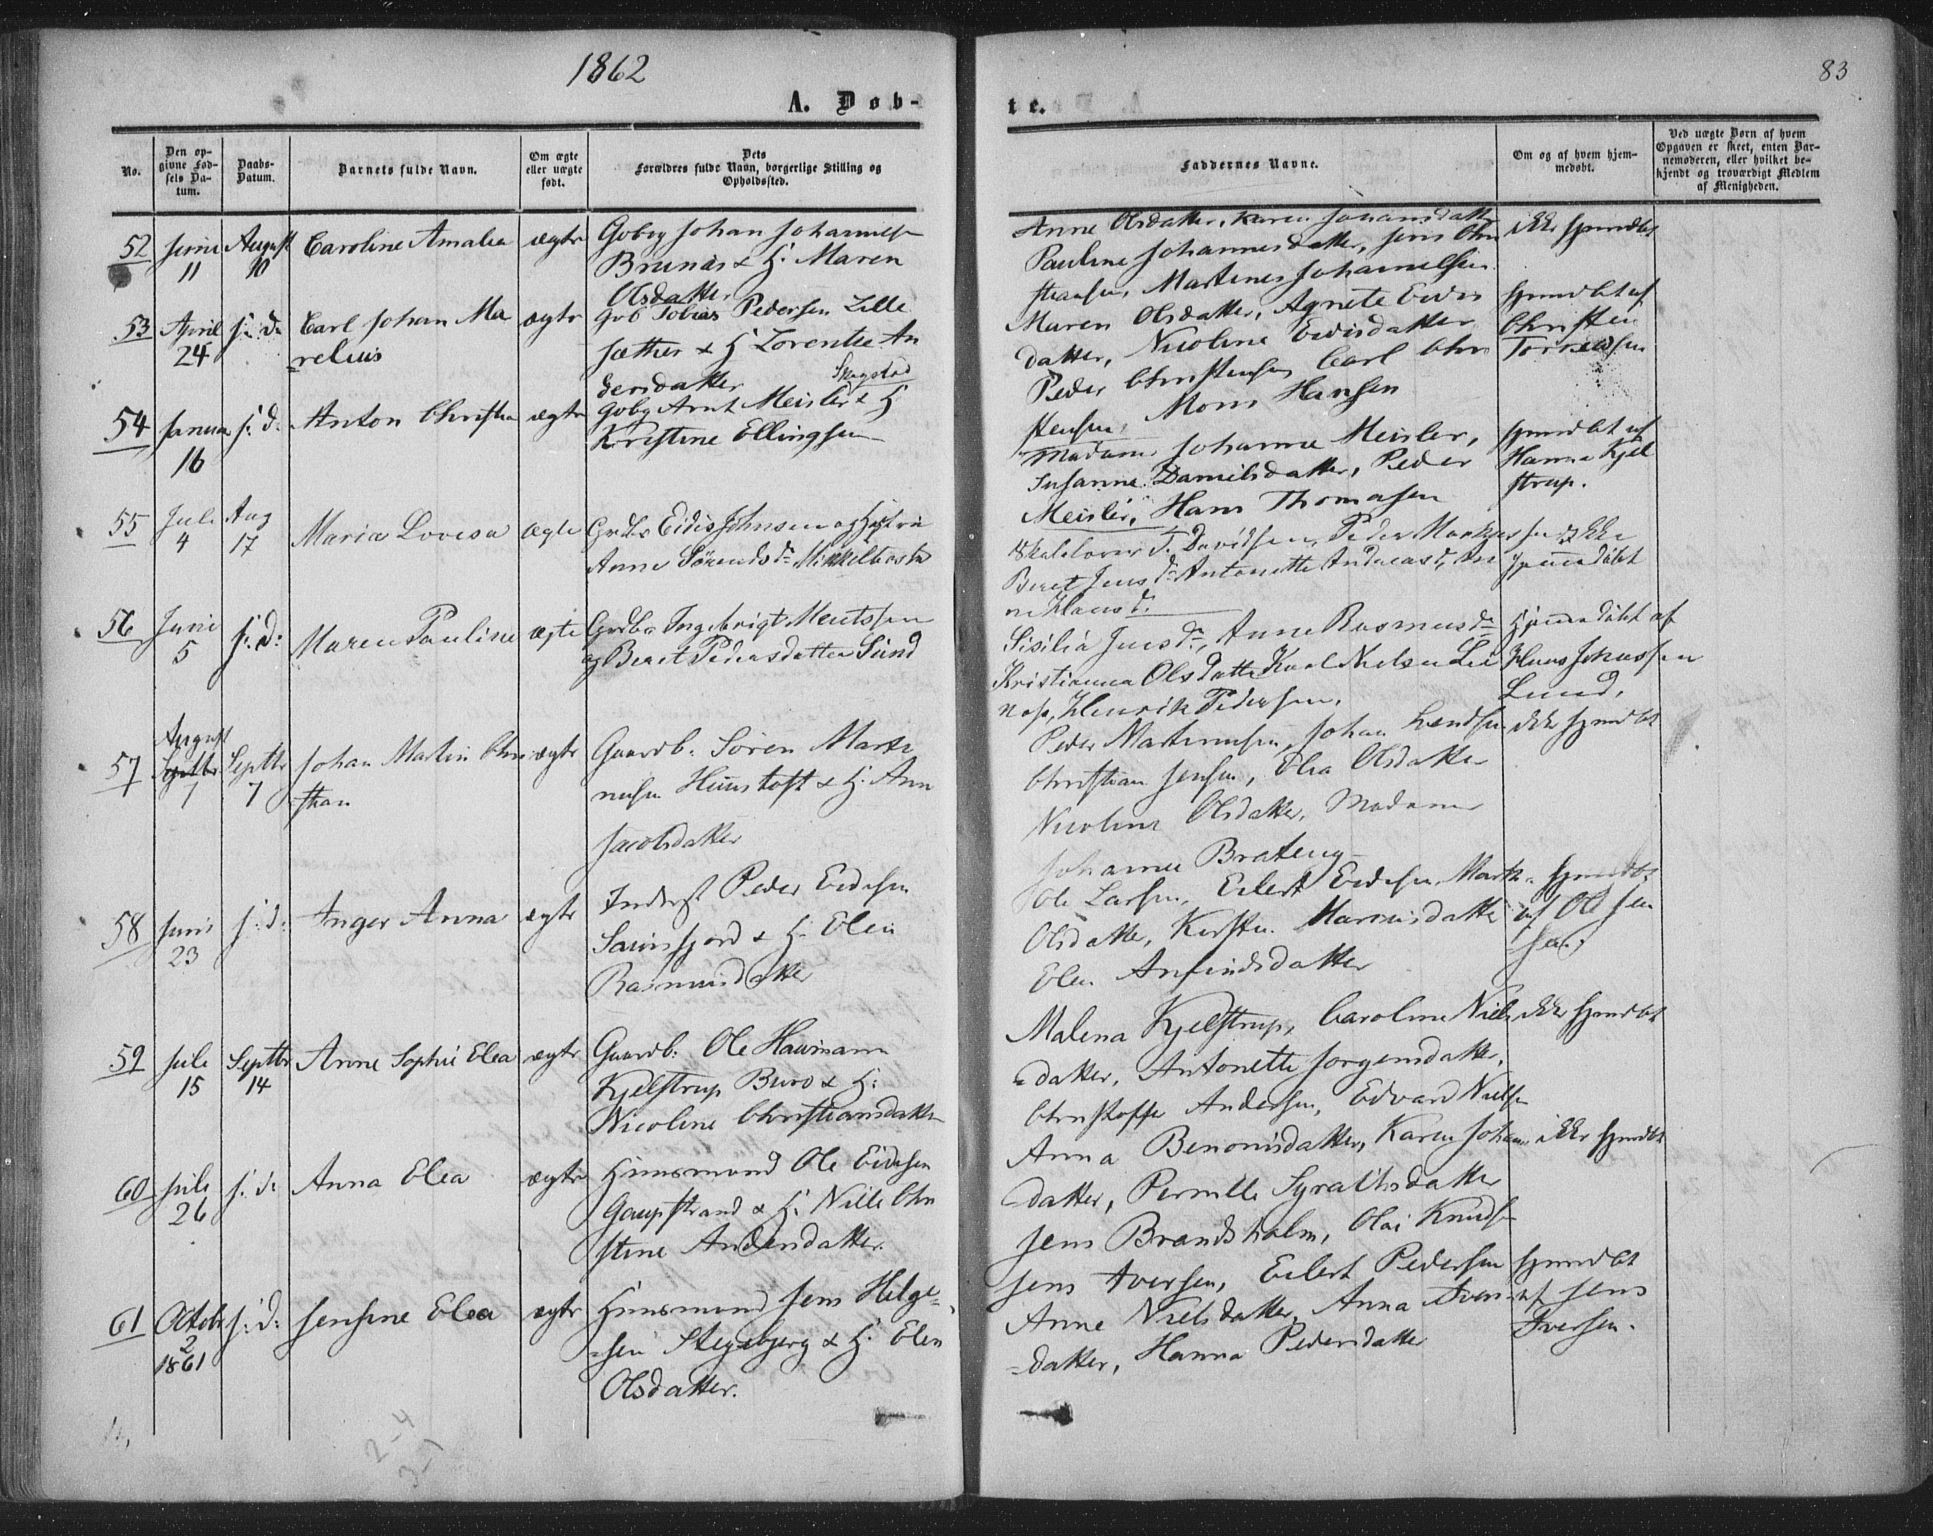 1862
83
A. Døb-
te.
No.
Den op-
givne Fød-
sels Da-
tum.
Daabs-
Datum.
Barnets fulde Navn.
Om ægte
eller uægte
født.
Dets
Forældres fulde Navn, borgerlige Stilling og
Opholdssted.
Faddernes Navne.
Om og af hvem hjem-
medøbt.
Ved uægte Børn af hvem
Opgaven er skeet, enten Bar-
nemoderen, eller hvilket be-
kjendt og troværdigt Medlem
af Menigheden.
52
Juni
11
August
10
Caroline Amalia
ægte
Johan Johannes
Brunes & H. Maren
Olsdatter
Anne Olsdatter, Karen Johansdatter
Pauline Johannesdatter, Jens Chri
stiansen, Martines Johannessen
ikke hjemdbt
53
April
24
s: d:
Carl Johan Ma
relius
ægte
Gvb Tobias Pedersen Lille
sæther & H Lorentse An
dersdatter
Maren Olsdatter, Agnete Eidis
datter, Nicoline Eidisdatter
Peder Christensen, Carl Chri
stensen, Mons Hansen
hjemdbt af
Christen
54
Janua
16
s: d.
Anton Christia
ægte
Skogstad
Arnt Meisler & H
Kristine Ellingsen
Madame Johanna Meisler,
Susanne Danielsdatter, Peder
Meisler, Hans Thomasen
hjemdbt af
Hanna Kjel
strup.
55
Juli
4
Aug
17
Maria Lovisa
ægte
Grdbr Eidis Johnsen og Hustru
Anne Sörends dr
Skolelærer T. Davidsen, Peder
Beret Jens dr Antonette Andreas d, An
ne Hans d.
ikke
hjemmedöbt
56
Juni
5
s: d:
Maren Pauline
ægte
Grdbr Ingebrigt Mentssen
og Beret Pedersdatter Sund
Sisilia Jens dr, Anne Rasmus dr
Kristianna Olsdatter Karl Nielsen Lei
nes, Henrik Pedersen.
hjemmedöbt af
Hans Johnssen
Lund.
57
August
Septbr
1
Septbr
7
Johan Martin Chri
stian
ægte
Gaardb. Søren Marti
nusen Hunstoft & H. Ann
Jacobsdatter
Peder Martinusen, Johan
Christian Jensen, Elea Olsdatter
Nicoline Olsdatter, Madame
Johanne Brateng
ikke hjemdbt
58
Juni
23
s: d:
Inger Anna
ægte
Inderst Peder Eidesen
& H. Elen
Rasmusdatter
Ole Larsen, Eilert Eidesen
Olsdatter,
Elen Amindsdatter
hjemdbt
af Ole Jen
sen.
59
Juli
15
Septbr
14
Anne Sophie Elea
ægte
Gaardb: Ole Hausmann
Kjelstrup Buro & H:
Nicoline Christiansdatter
Malena Kjelstrup, Caroline Niels
datter, Antonette Jørgensdatter,
Christoffer Andersen, Edvard Nielsen
ikke hjemdbt
60
Juli
26
s: d:
Anna Elea
ægte
Huusmand Ole Eidesen
Gaupstrand & H. Nille Chri
stine Andersdatter.
Anna Benonisdatter, Karen Johans
datter, Pernille Syrachsdatter
Jens Brandsholm, Olai Knudsen
ikke hjemdbt
61
Octobr
2
1861
s: d:
Jensine Elea
ægte
Huusmand Jens Helge-
sen Stegebjerg & H. Elen
Olsdatter.
Jens Iversen, Eilert Pedersen
Anne Nielsdatter, Anna Ivers
datter, Hanna Pedersdatter
hjemdbt
af Jens
Iversen.
2-4